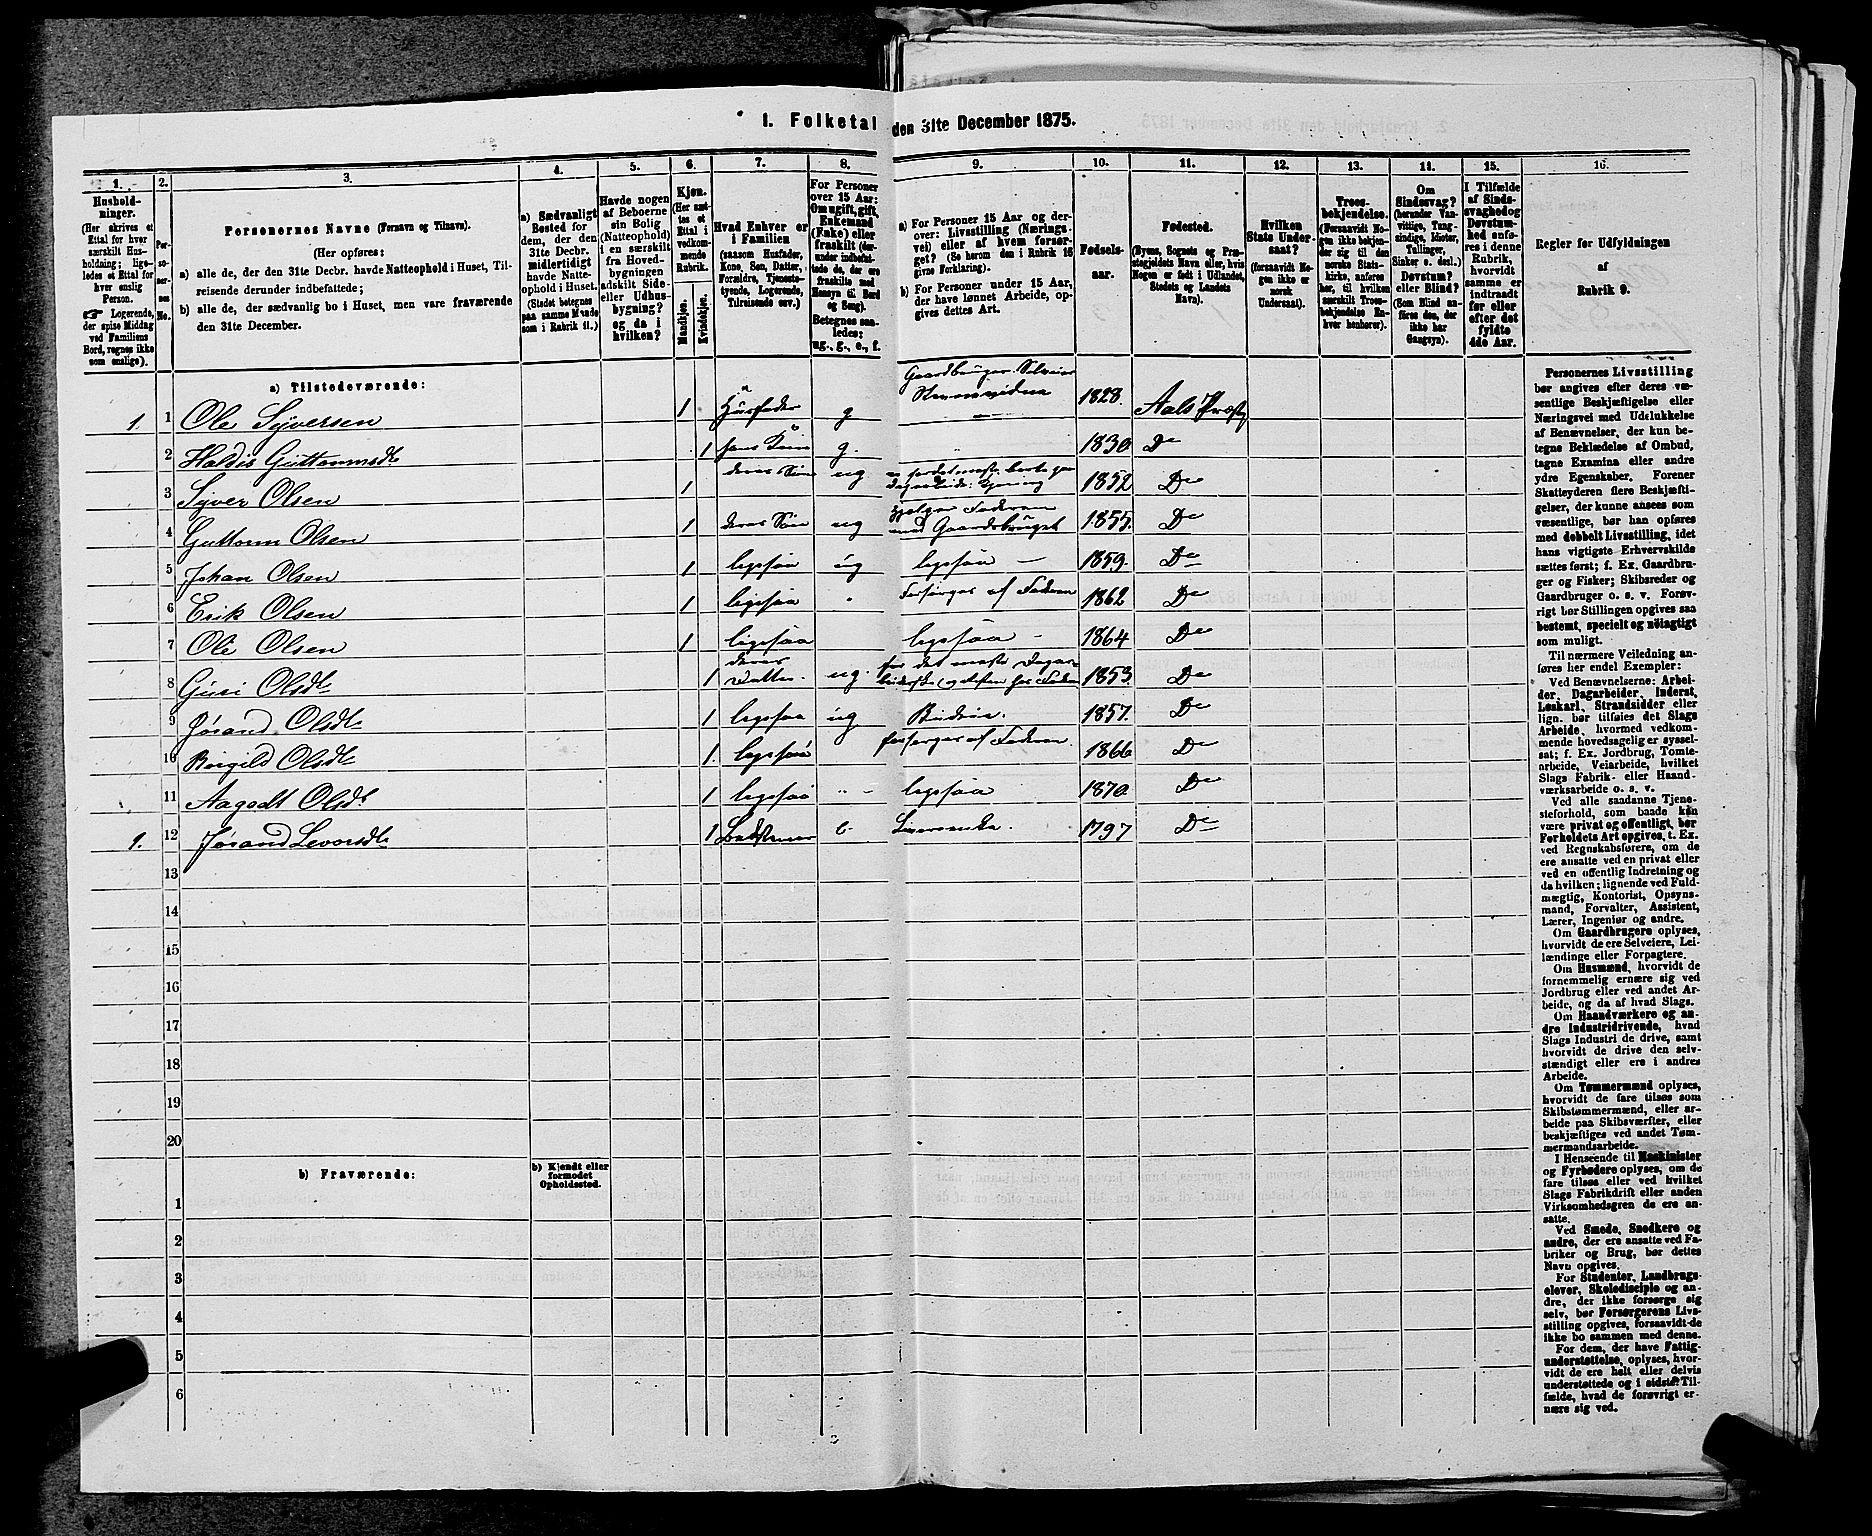 1. Folketal den 31te December 1875.
1. 2. 3. 4. 5. 6. 7. 8. 9. 10. 11. 12. 13. 14. 15. 16.
Hushold-
ninger.
(Her skrives et
Ettal for hver
særskilt Hus-
holdning; lige-
ledes et Ettal for
hver enslig
Person.
☞ Logerende,
der spise Middag
ved Familiens
Bord, regnes ikke
som enslige).
Personernes Navne (Fornavn og Tilnavn).
(Her opføres:
a) alle de, der den 31te Decbr. havde Natteophold i Huset, Til-
reisende derunder indbefattede;
b) alle de, der sædvanlig bo i Huset, men vare fraværende
den 31te December.
a) Sædvanligt
Bosted for
dem, der den
31te Decbr.
midlertidigt
havde Natte-
ophold i Huset.
(Stedet betegnes
paa samme Maade
som i Rubrik 11.)
Havde nogen
af Beboerne
sin Bolig
(Natteophold)
i en særskilt
fra Hoved-
bygningen
adskilt Side-
eller Udhus-
bygning?
og da i
hvilken?
Kjøn.
(Her sæt-
tes et
Ettal i
vedkom-
mende
Rubrik.
Mandkjøn.
Kvindekjøn.
Hvad Enhver er
i Familien
(saasom Husfader,
Kone, Søn, Datter,
Forældre, Tjeneste-
tyende, Logerende,
Tilreisende osv.)
For Personer
over 15 Aar:
Om ugift, gift,
Enkemand
(Enke) eller
fraskilt (der-
under indbefat-
tede de, der ere
fraskilte med
Hensyn til Bord
og Seng).
Betegnes saa-
ledes:
ug., g., e., f.
a) For Personer 15 Aar og der-
over: Livsstilling (Nærings-
vei) eller af hvem forsør-
get? (Se herom den i Rubrik 16
givne Forklaring).
b) For Personer under 15 Aar,
der have lønnet Arbeide, op-
gives dettes Art.
Fødsels-
aar.
Fødested.
(Byens, Sognets og Præ-
stegjeldets Navn eller, hvis
Nogen er født i Udlandet,
Stedets og Landets
Navn).
Hvilken
Stats Under-
saat?
(forsaavidt No-
gen ikke er
norsk
Undersaat).
Troes-
bekjendelse.
(Forsaavidt No-
gen ikke bekjen-
der sig til den
norske Stats-
kirke, anføres
her, til hvilken
særskilt Troes-
bekjendelse En-
hver henhører).
Om
Sindssvag?
(herunder Van-
vittige, Tung-
sindige, Idioter,
Tullinger,
Sinker o. desl.)
Døvstum?
eller Blind?
(Som Blind an-
føres den, der
ikke har
Gangsyn).
I Tilfælde
af Sinds-
svaghed og
Døvstum-
hed anfø-
res i denne
Rubrik,
hvorvidt
samme er
indtraadt
før eller
efter det
fyldte
4de Aar.
Regler for Udfyldningen
af
Rubrik 9.
a) Tilstedeværende:
1. 1 Ole Syversen 1 Husfader g Gaardbruger Selveier 1828. Aals Præstg
2 Haldis Guttormsdtr 1 hans Kone g. 1830 Do
3 Syver Olsen 1 deres Søn ug 1852 Do
4 Guttorm Olsen 1 deres Søn ug hjelper Faderen med Gaardsbruget 1855. Do
5 Johan Olsen 1 ligesaa ug ligesaa — 1859. Do
6 Erik Olsen 1 ligesaa " Forsørges af Faderen 1862 Do
7 Ole Olsen 1 ligesaa ligesaa — 1864 Do
8 Guri Olsdtr 1 deres Datter. ug. 1853 Do
9 Jørand Olsdtr 1 ligesaa ug Budeie. 1857. Do
10 Birgild Olsdtr 1. ligesaa forsørges af Faderen. 1866 Do
11 Aagodt Olsdtr 1 ligesaa " - ligesaa 1870 Do
1. 12 Jørand Levorsdtr 1 e. 1797 Do
13
14
15
16
17
18
19
20
b) Fraværende:
b) Kjendt eller
formodet
Opholdssted.
1
2
3
4
5
6
Personernes Livsstilling
bør angives efter deres væ-
sentlige Beskjæftigelse eller
Næringsvei med Udelukkelse
af Benævnelser, der kun be-
tegne Beklædelse af Ombud,
tagne Examina eller andre
ydre Egenskaber. Forener
Skatteyderen flere Beskjæfti-
gelser, der kunne ansees som
væsentlige, bør han opføres
med dobbelt Livsstilling, idet
hans vigtigste Erhvervskilde
sættes først; f. Ex. Gaardbru-
ger og Fisker; Skibsreder og
Gaardbruger o. s. v. Forøv-
rigt bør Stillingen opgives saa
bestemt, specielt og nøiagtigt
som muligt.
Til nærmere Veiledning an-
føres her endel Exempler:
Ved Benævnelserne: Arbei-
der, Dagarbeider, Inderst,
Løskarl, Strandsidder eller
lign. bør tilføies det Slags
Arbeide, hvormed vedkom-
mende hovedsagelig er syssel-
sat; f. Ex. Jordbrug, Tomte-
arbeide, Veiarbeide, hvilket
Slags Fabrik- eller Haand-
værksarbeide o. s. v.
Ved alle saadanne Tjene-
steforhold, som baade kan
være privat og offentligt, bør
Forholdets Art opgives, t. Ex.
ved Regnskabsførere, om de
ere ansatte ved en privat eller
ved en offentlig Indretning og
da hvilken; lignende ved Fuld-
mægtig, Kontorist, Opsyns-
mand, Forvalter, Assistent,
Lærer, Ingeniør og andre.
Om Gaardbrugere oplyses,
hvorvidt de ere Selveiere, Lei-
lændinge eller Forpagtere.
Om Husmænd, hvorvidt de
fornemmelig ernære sig ved
Jordbrug eller ved andet Ar-
beide, og da af hvad Slags.
Om Haandværkere og an-
dre Industridrivende, hvad
Slags Industri de drive, samt
hvorvidt de drive den selv-
stændigt eller ere i andres
Arbeide.
Om Tømmermænd oplyses,
hvorvidt de fare tilsøs som
Skibstømmermænd, eller ar-
beide paa Skibsværfter, eller
beskjæftiges ved andet Tøm-
mermandsarbeide.
I Henseende til Maskinister
og Fyrbødere oplyses, om de
fare tilsøs eller ved hvilket
Slags Fabrikdrift eller anden
Virksomhedsgren de ere an-
satte.
Ved Smede, Snedkere og
andre, der ere ansatte ved Fa-
briker og Brug, bør dettes
Navn opgives.
For Studenter, Landbrugs-
elever, Skoledisciple og an-
dre, der ikke forsørge sig
selv, bør Forsørgerens Livs-
stilling opgives, forsaavidt de
ikke bo sammen med denne.
For dem, der have Fattig-
understøttelse, oplyses, hvor-
vidt de ere helt eller delvis
understøttede og i sidste Til-
fælde, hvad de forøvrigt er-
nære sig ved.